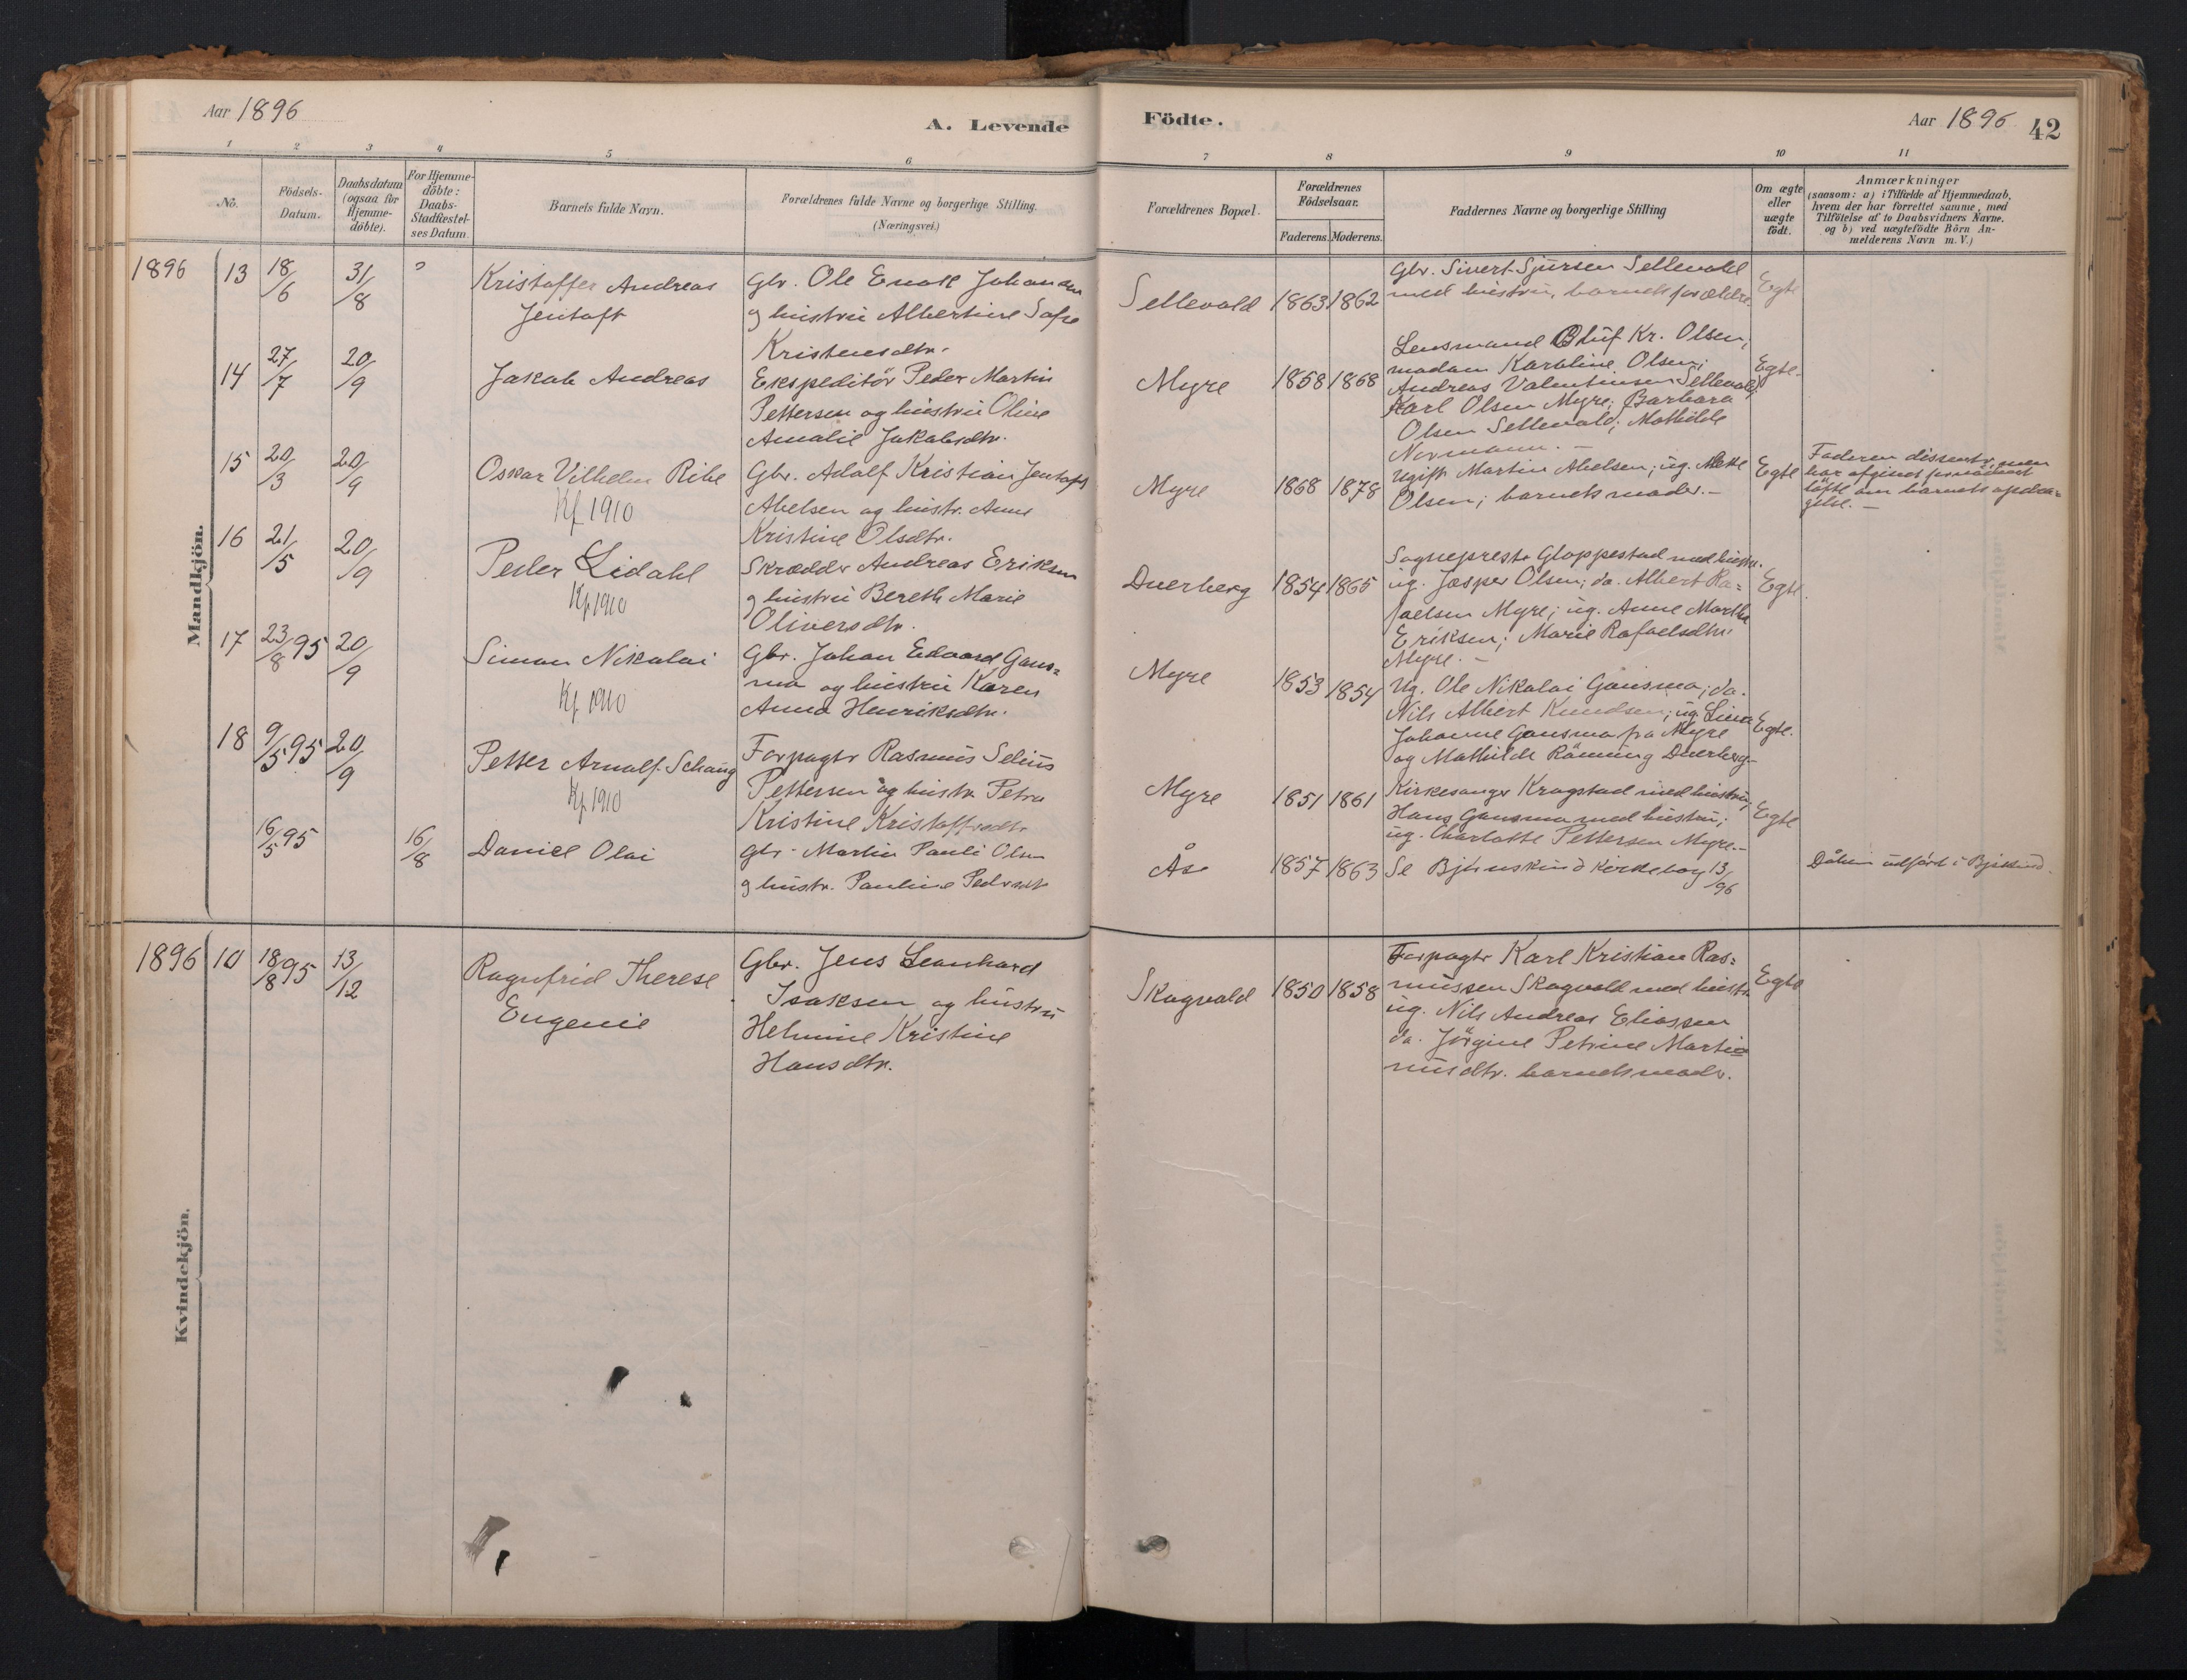 Aar 1896
A. Levende
Födte.
Aar 1896
42
1 2 3 4 5 6 7 8 9 10 11
No.
Födsels-
Datum.
Daabsdatum
(ogsaa for
Hjemme-
döbte).
For Hjemme-
döbte:
Daabs-
Stadfæstel-
ses Datum.
Barnets fulde Navn.
Forældrenes fulde Navne og borgerlige Stilling.
(Næringsvei.)
Forældrenes Bopæl.
Forældrenes
Födselsaar.
Faderens. Moderens.
Faddernes Navne og borgerlige Stilling
Om ægte
eller
uægte
födt.
Anmærkninger
(saasom: a) i Tilfælde af Hjemmedaab,
hvem der har forrettet samme, med
Tilföielse af to Daabsvidners Navne.
og b) ved uægtefödte Börn An-
melderens Navn m. V.)
Mandkjön.
1896
13 18/6 31/8
Kristoffer Andreas
Jentoft
Gbr. Ole Enok Johansen
og hustru Albertine
Kristensdtr.
Sellevold 1863 1862
Gbr. Sivert Sjursen Sellevold
med hustru, barnets forældre
Egte
14 27/7 20/9
Jakob Andreas
Ekspeditör Peder Martin
Pettersen og hustru Oline
Amalie Jakobsdtr.
Myre 1858 1868
Lensmand Oluf Kr. Olsen,
madam Karoline Olsen;
Andreas Valentinsen Sellevold;
Karl Olsen Myre; Barbara
Olsen Sellevold; Mathilde
Normann. -
Egte.
15 20/3 20/9
Oskar Vilhelm Ribe
Kf 1910
Gbr. Adolf Kristian Jentoft
Abelsen og hustr. Anne
Kristine Olsdtr.
Myre 1868 1878
Ugift Martin Abelsen; ug. Mette
Olsen; barnets moder. -
Egte
Faderen dissenter, men
har afgivet
löfte om barnets opdra-
gelse. -
16 21/5 20/9
Peder Lidahl
Kf 1910
Skrædder Andreas Eriksen
og hustru Bereth Marie
Oliversdtr.
Dverberg 1854 1865
Sogneprest Gloppestad med hustr.
ug. Jesper Olsen; do. Albert Ra=
faelsen Myre; ug. Anne Marthe
Eriksen; Marie Rafaelsdtr.
Myre. -
Egte.
17 23/8 95 20/9
Simon Nikolai
Kf 1910
Gbr. Johan Edvard Gans=
ma og hustru Karen
Anna Henriksdtr.
Myre 1853 1854
Ug. Ole Nikolai Gansma; do.
Nils Albert Knudsen; ug. Lina
Johanne Gansma fra Myre
og Mathilde Röning Dverberg-
Egte.
18 9/5 95 20/9
Petter Arnolf Schaug
Kf 1910
Forpagtr Rasmus Selius
Pettersen og hustr. Petra
Kristine Kristoffersdtr
Myre 1851 1861
Kirkesanger Krogstad med hustru,
Hans Gansma med hustru;
ug. Charlotte Pettersen Myre.-
Egte
16/5 95 16/8
Daniel Olai
Gbr. Martin Pauli Olsen
og hustr. Pauline Pedersdtr
Åse 1857 1863
Se Bjórnskind Kirkebog 13/96
Dåben udförd i Bjskind.
Kvindekjön.
1896 10 18/8 95 13/12
Ragnfrid Therese
Eugenie
Gbr. Jens Leonhard
Isaksen og hustru
Helmine Kristine
Hansdtr.
Skogvold 1850 1858
Forpagtr Karl Kristian Ras=
mussen Skogvold med hustr.
ug. Nils Andreas Eliassen
do. Jörgine Petrine Marti=
nusdtr. barnets moder.
Egte